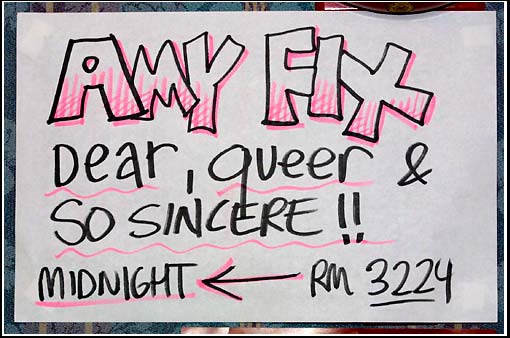 AMY FIX
Dear, queer &
SO SINCERE !!
MIDNIGHT ← RM 3224